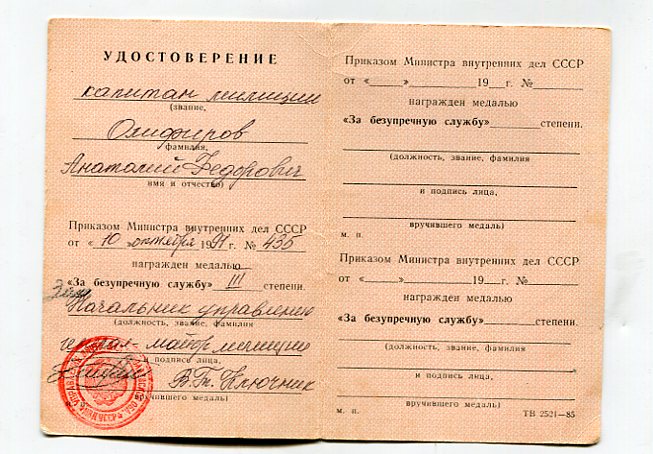 УДОСТОВЕРЕНИЕ
капитан милиции
(звание,
Олифиров
фамилия,
Анатолий Федорович
имя и отчество)
Приказом Министра внутренних дел СССР
от «10» октября 1991 г. № 435
награжден медалью
«За безупречную службу» III степени.
Зам. Начальник управления
(должность, звание, фамилия
генерал-майор милиции
и подпись лица,
В. Ключник
вручившего медаль)
Приказом Министра внутренних дел СССР
от «____»____________19__г. №______
награжден медалью
«За безупречную службу»________степени.
(должность, звание, фамилия
и подпись лица,
вручившего медаль)
м. п.
Приказом Министра внутренних дел СССР
от «____»____________19__г. №______
награжден медалью
«За безупречную службу»________степени.
(должность, звание, фамилия
и подпись лица,
вручившего медаль)
м. п.
ТВ 2521—85